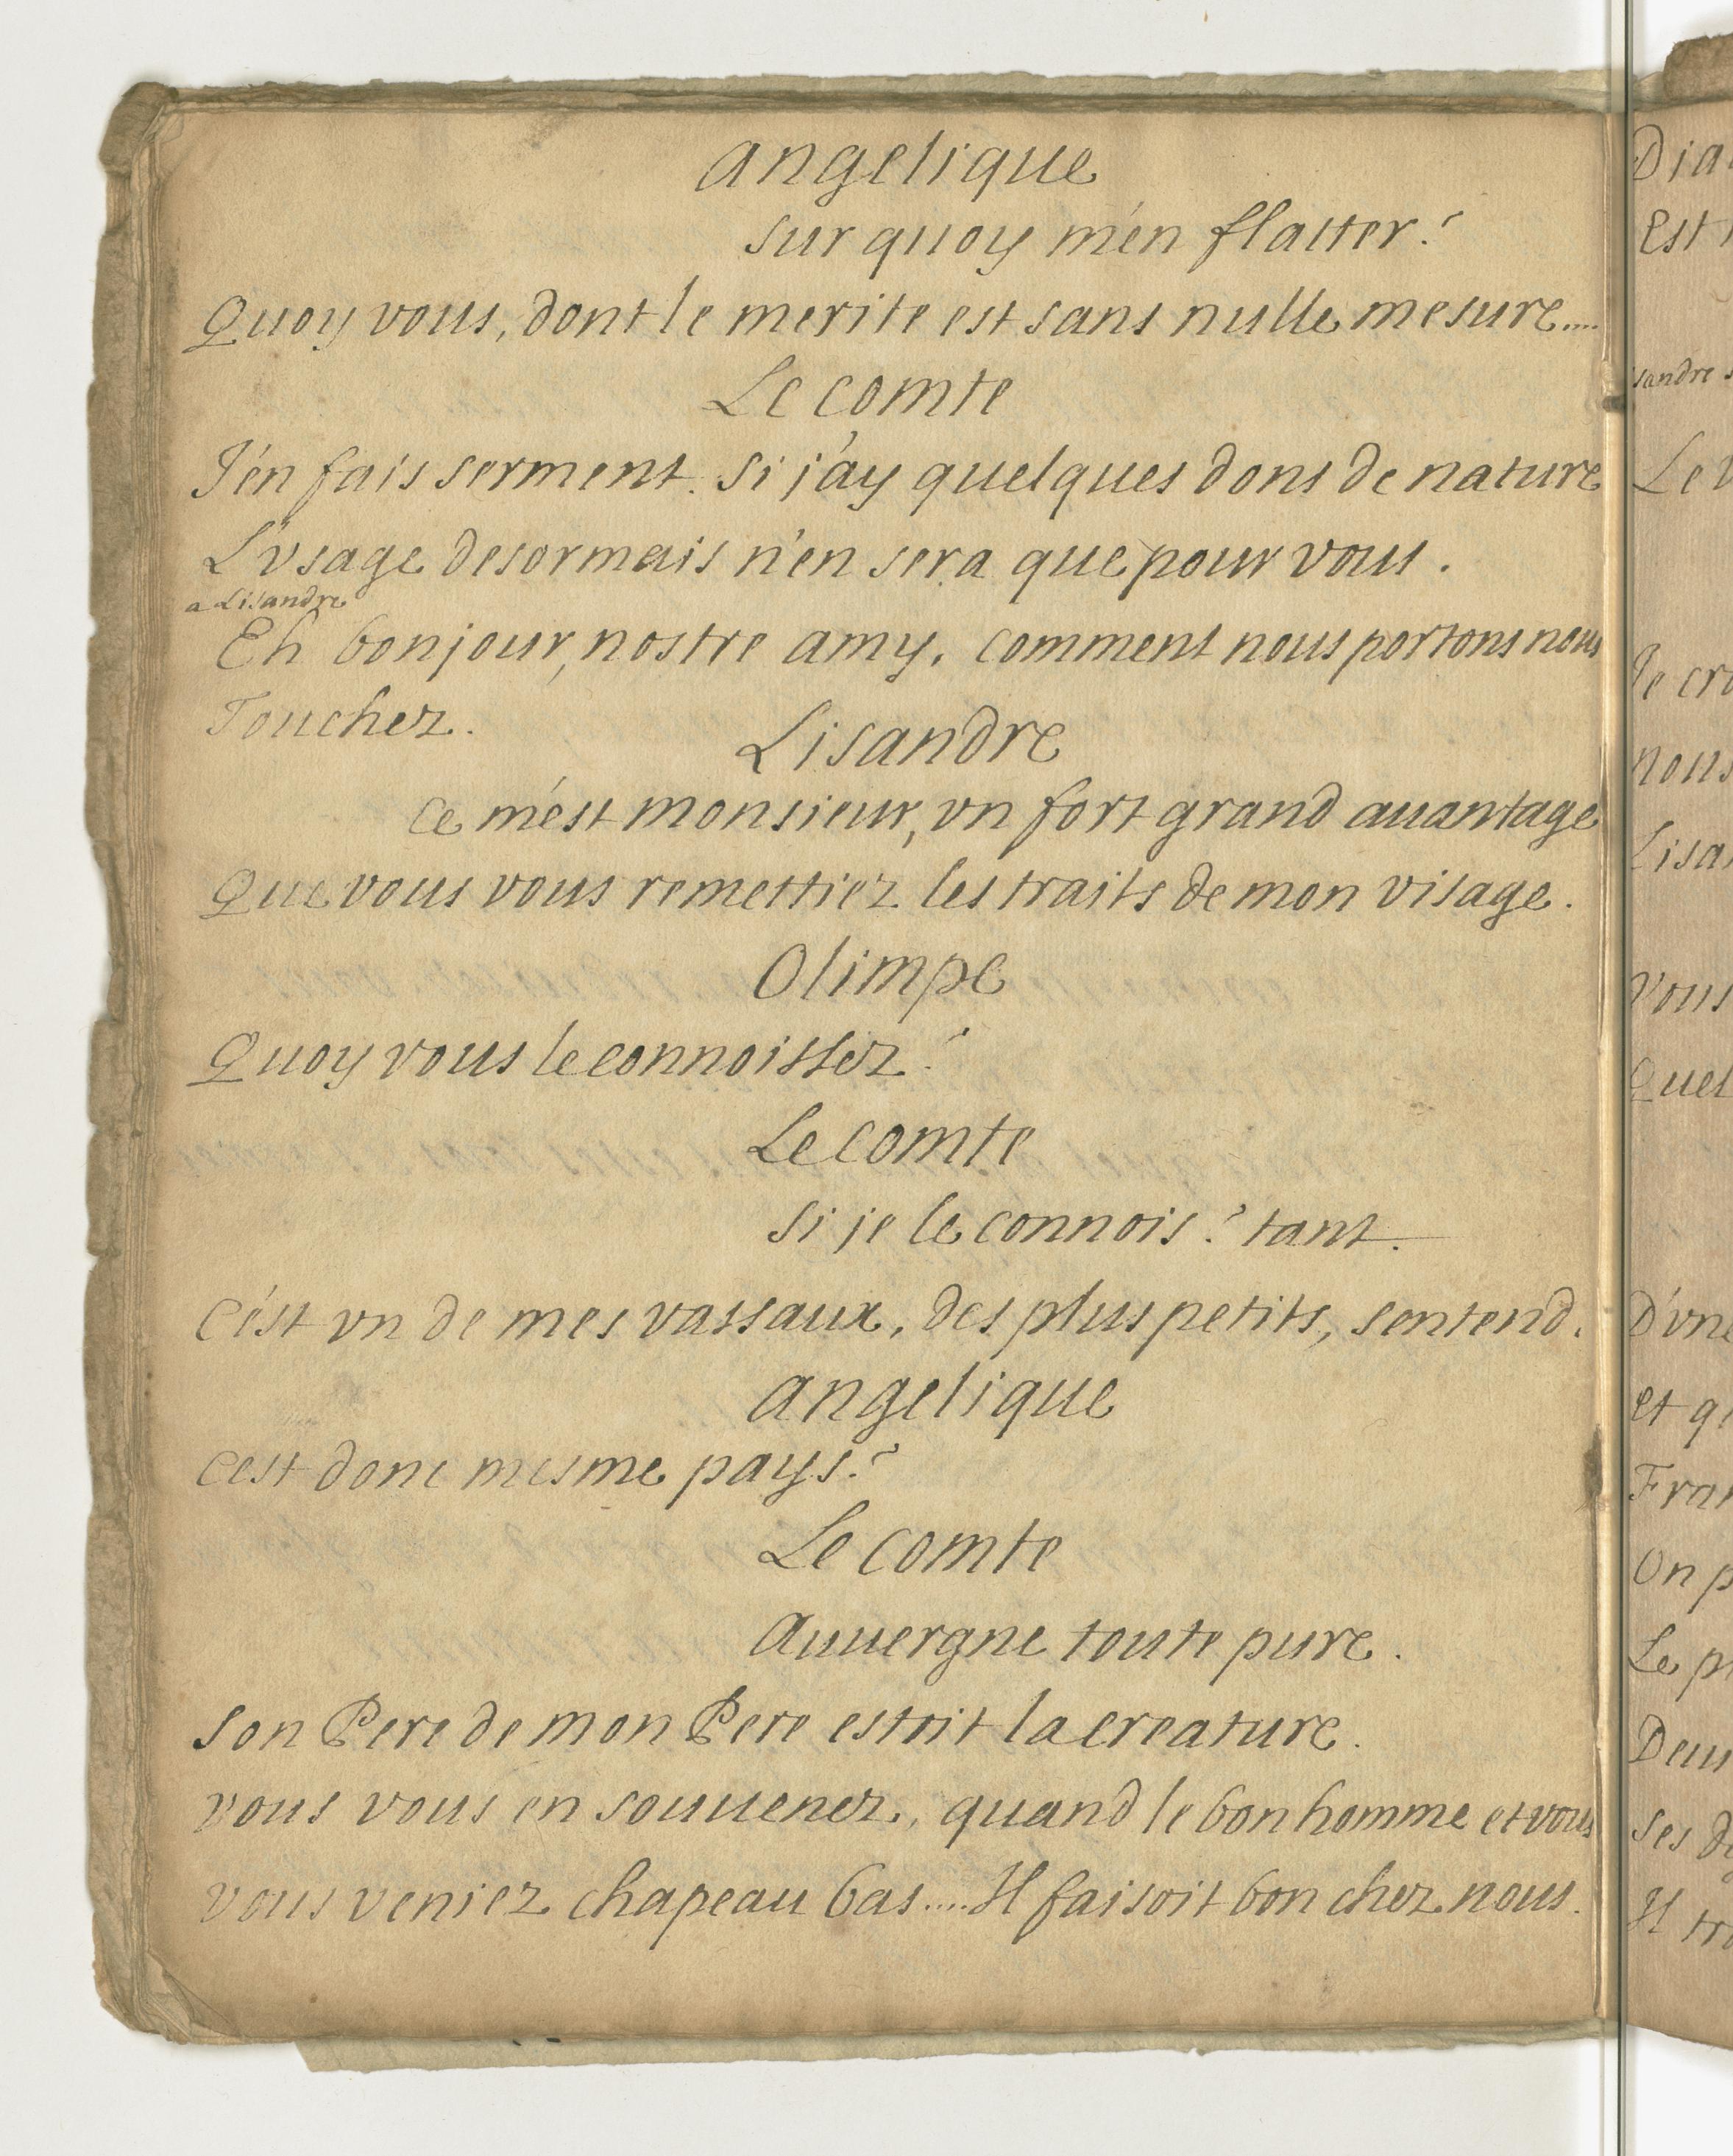 angelique
sur quoy m'en flatter?
Quoy vous, dont le merite est sans nulle mesure....
Le comte
J'en fais serment. Si j'ay quelques dons de nature
L'vsage desormais n'en sera que pour vous.
a Lisandre
Eh bonjour, nostre amy, comment nous portons nous
Touchez.
Lisandre
Ce m'est monsieur, vn fort grand auantage
Que vous vous remettiez les traits de mon visage.
Olimpe
Quoy vous le connoissez?
Le comte
Si je le connois? tant.
C'est vn de mes vassaux, des plus petits, sentend.
angelique
Cest donc mesme pays?
Le comte
Auuergne toute pure.
Son Pere de mon Pere estoit la creature.
vous vous en souuenez, quand le bon homme et vous
vous veniez chapeau bas.... Il faisoit bon chez nous.
Est
sandre
Je
nous
vous
D'vne
et
On
Le
Ses
Il